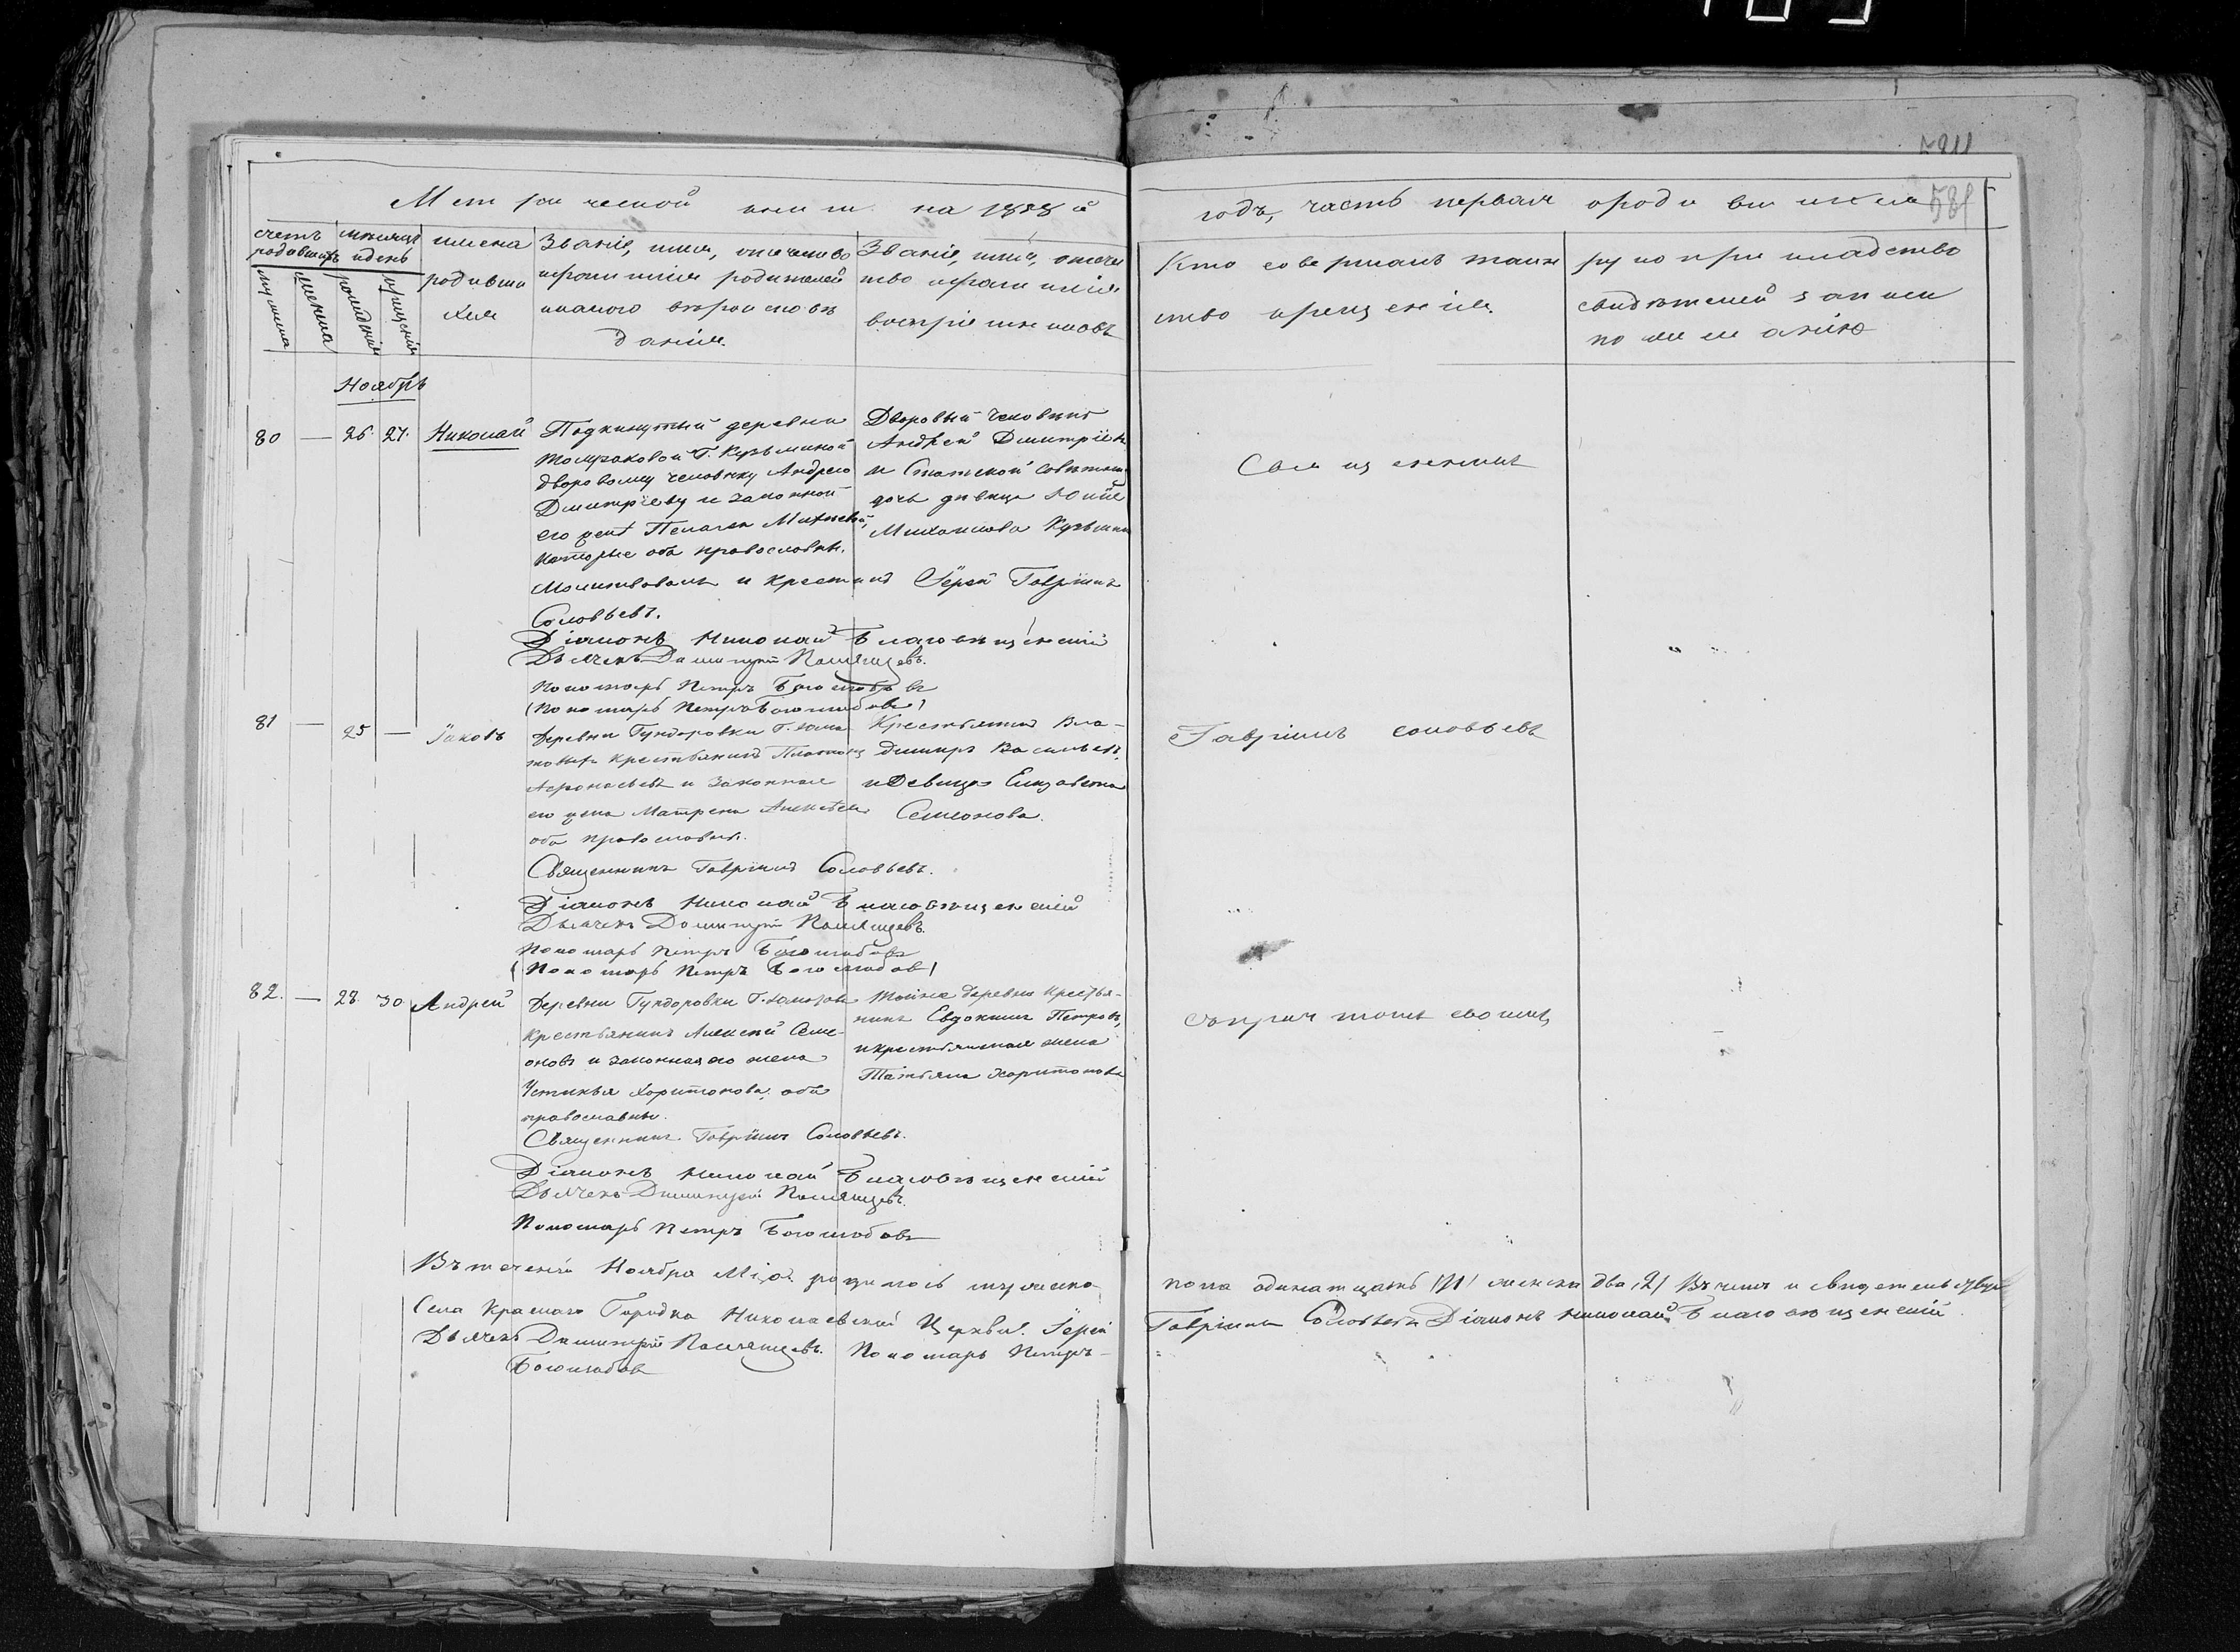 581
Метрической книги на 1858й
годъ, часть первая о родившихся
581
счетъ родившихся
мужеска
женска
месяцъ и день
рожденiя
крещенiя
имена родивши хся
Званiе, имя, отечество
и фамилiя родителей
и какого вероиспове
данiя.
Званiе, имя, отече
ство и фамилiя
восприемниковъ
Кто совершалъ таин
ство крещенiя.
рукоприкладство
свидетелей записи
по желанiю
Ноябрь
80 — 26. 27. Николай
Подкинутый деревни
Г. Кузьминой
дворовому человеку Андрею
Дмитрiеву и законной
его жене Пелагеи
которые оба православны.
Дворовый человекъ
Андрей Дмитрiевъ
и Статской Советн
дочь девица Юлiя
Михайлова Кузьмина
Священникъ
Молитвовалъ и крестилъ Iерей Гаврiилъ
Соловьевъ.
Дiаконъ Николай Благовещенскiй
Дьячекъ Димитрiй
Пономарь Петръ Боголюбовъ
(Пономарь Петръ Боголюбовъ)
81 — 25 — Iаковъ
Деревни Гундоровки Г.
крестьянинъ Платонъ
Афонасьевъ и законная
его жена Матрена Алексеева
оба православны.
Крестьянинъ Вла-
димиръ Васильевъ
и Девица Елизавета
Семионова.
Гаврiилъ Соловьевъ
Священникъ Гаврiилъ Соловьевъ.
Дiаконъ Николай Благовещенскiй
Дьячекъ Димитрiй
Пономарь Петръ Боголюбовъ
(Пономарь Петръ Боголюбовъ)
82. — 28. 30. Андрей
Деревни Гундоровки Г.
крестьянинъ Алексей Семи-
оновъ и законная его жена
Устинья Харитонова, оба
православны.
Тойже деревни крестья-
нинъ Евдокимъ Петровъ,
и крестьянская жена
Татьяна Харитонова
съ причтомъ своимъ
Священникъ Гаврiилъ Соловьевъ.
Дiаконъ Николай Благовещенскiй
Дьячекъ Димитрiй
Пономарь Петръ Боголюбовъ
Въ теченiи Ноября М-ца родилось мужеска
пола одинатцать (11) женска два (2) Въ чемъ и свидетельствуемъ
Села Краснаго Городка Николаевской Церкви. Iерей
Гаврiилъ Соловьевъ Дiаконъ Николай Благовещенскiй
Дьячекъ Димитрiй Пономарь Петръ
Боголюбовъ